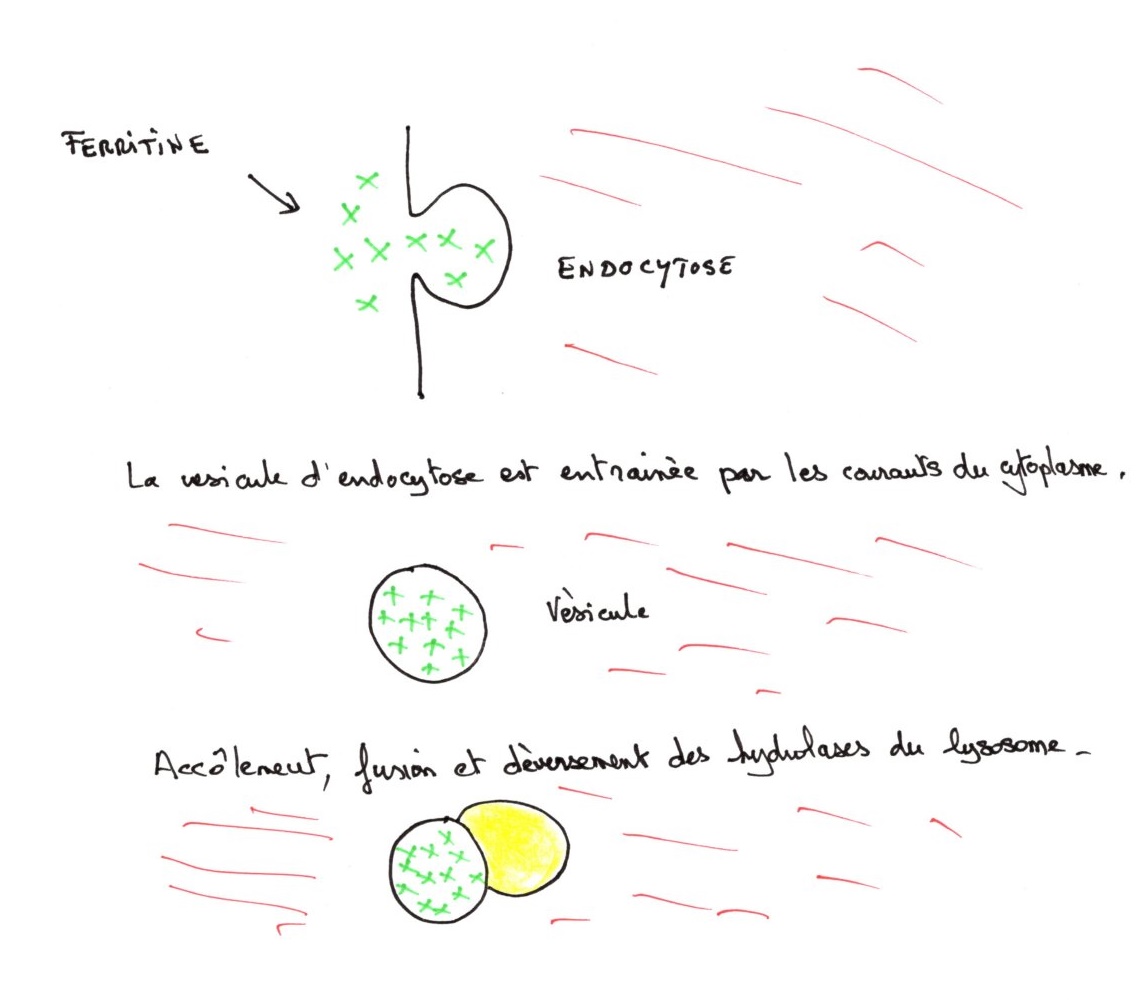 FERRITINE
ENDOCYTOSE
La vesicule d'endocytose est entrainèe par les courants du cytoplasme.
Vèsicule
Accôlement, fusion et dèversement des hydrolases du lysosome -